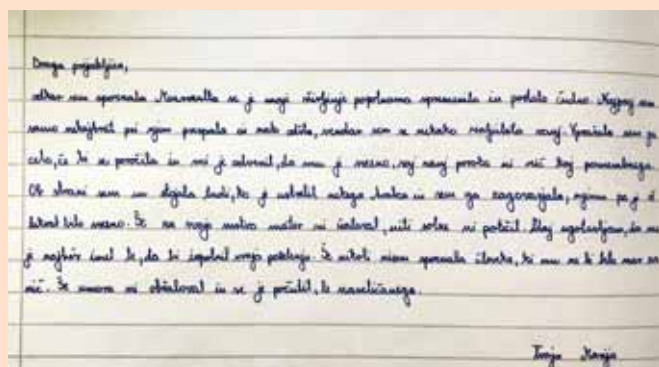 Draga prijateljica,
odkar sem spoznala Meursaulta se je moje življenje popolnoma spremenilo in postalo čudno. Najprej sem
samo nekajkrat pri njem prespala in nato odšla, vendar sem se nekako navezala nanj. Vprašala sem ga
celo, če bi se poročila in mi je odvrnil, da mu je vseeno, saj naj poroka ni nič kaj pomembnega.
Ob strani sem mu stala tudi, ko je ustrelil nekega Arabca in sem ga zagovarjala, njemu pa je
bilo vseeno. Še za svojo mrtvo mater ni žaloval, niti solze ni potočil. Zdaj ugotavljam, da me
je najbrž imel le, da bi izpolnil svojo potrebo. Še nikoli nisem spoznala človeka, ki mu ne bi bilo mar za
nič. Še umora ni obžaloval in se je počutil, le naveličanega.
Tvoja Marija